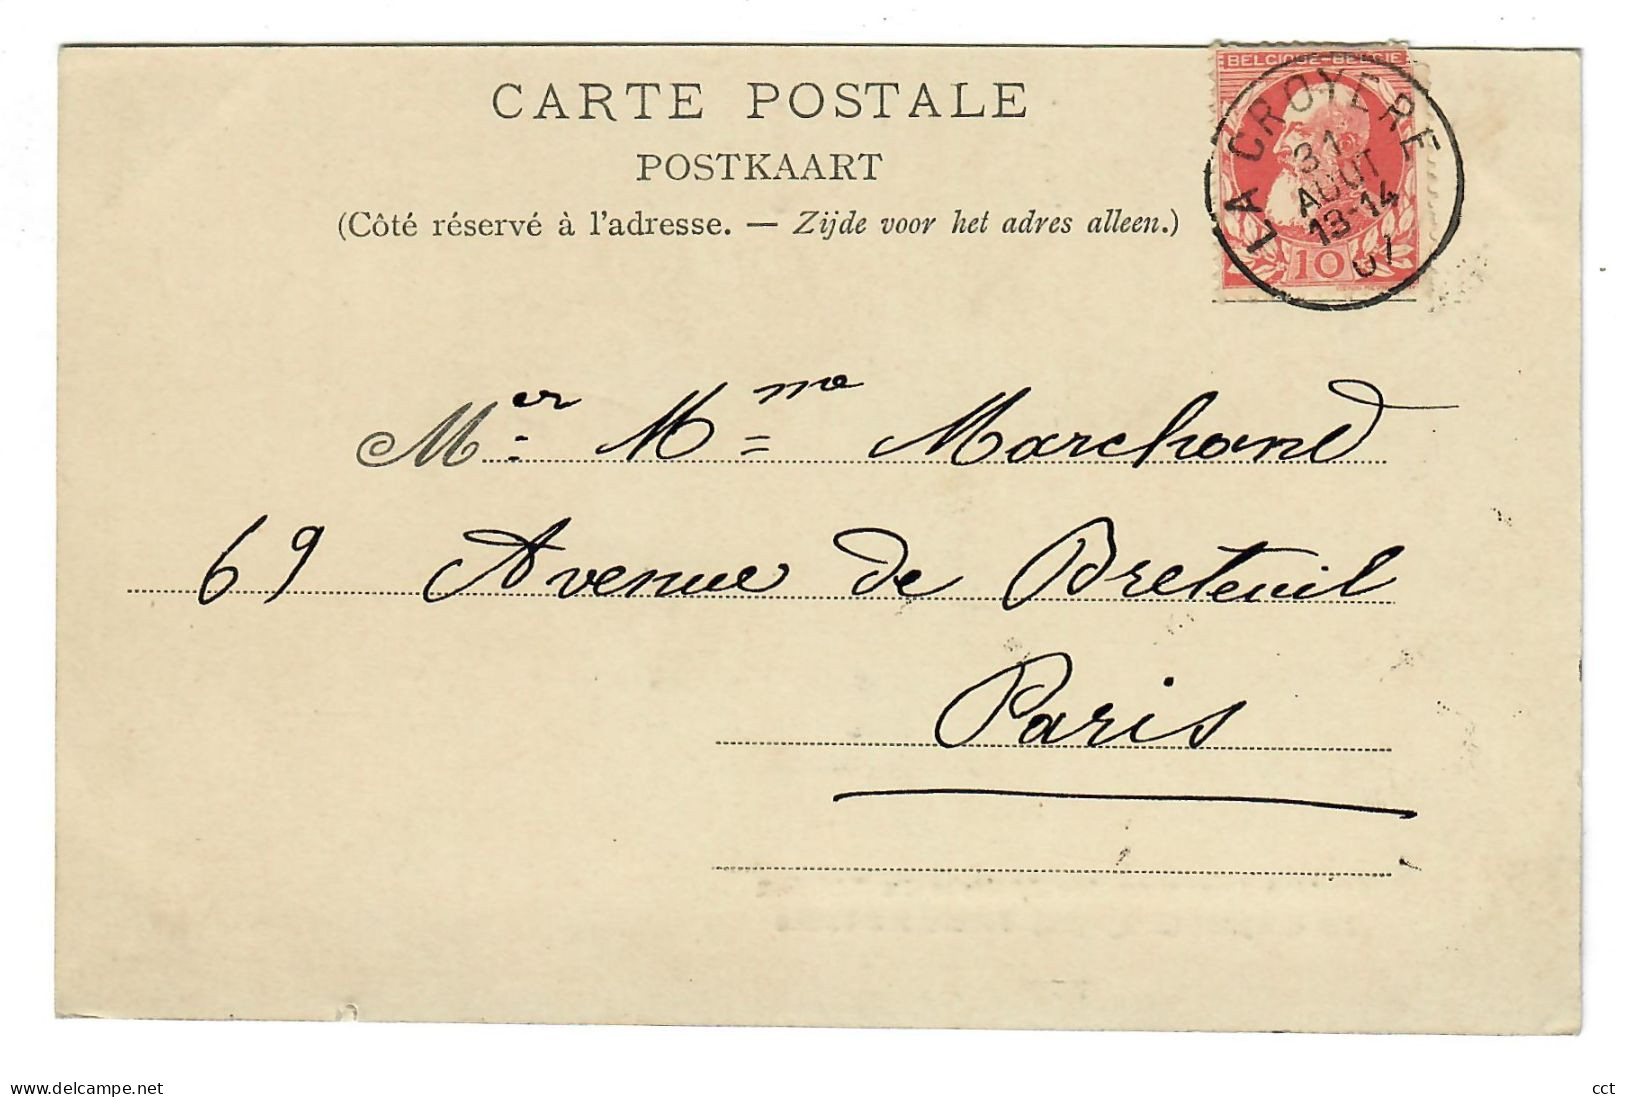 CARTE POSTALE
POSTKAART
(Côté réservé à l'adresse. — Zijde voor het adres alleen.)
BELGIQUE-BELGIE
LA CROYERE
31
AOUT
13-14
07
10
Mer Mme Marchand
69 Avenue de Breteuil
Paris
www.delcampe.net
cct